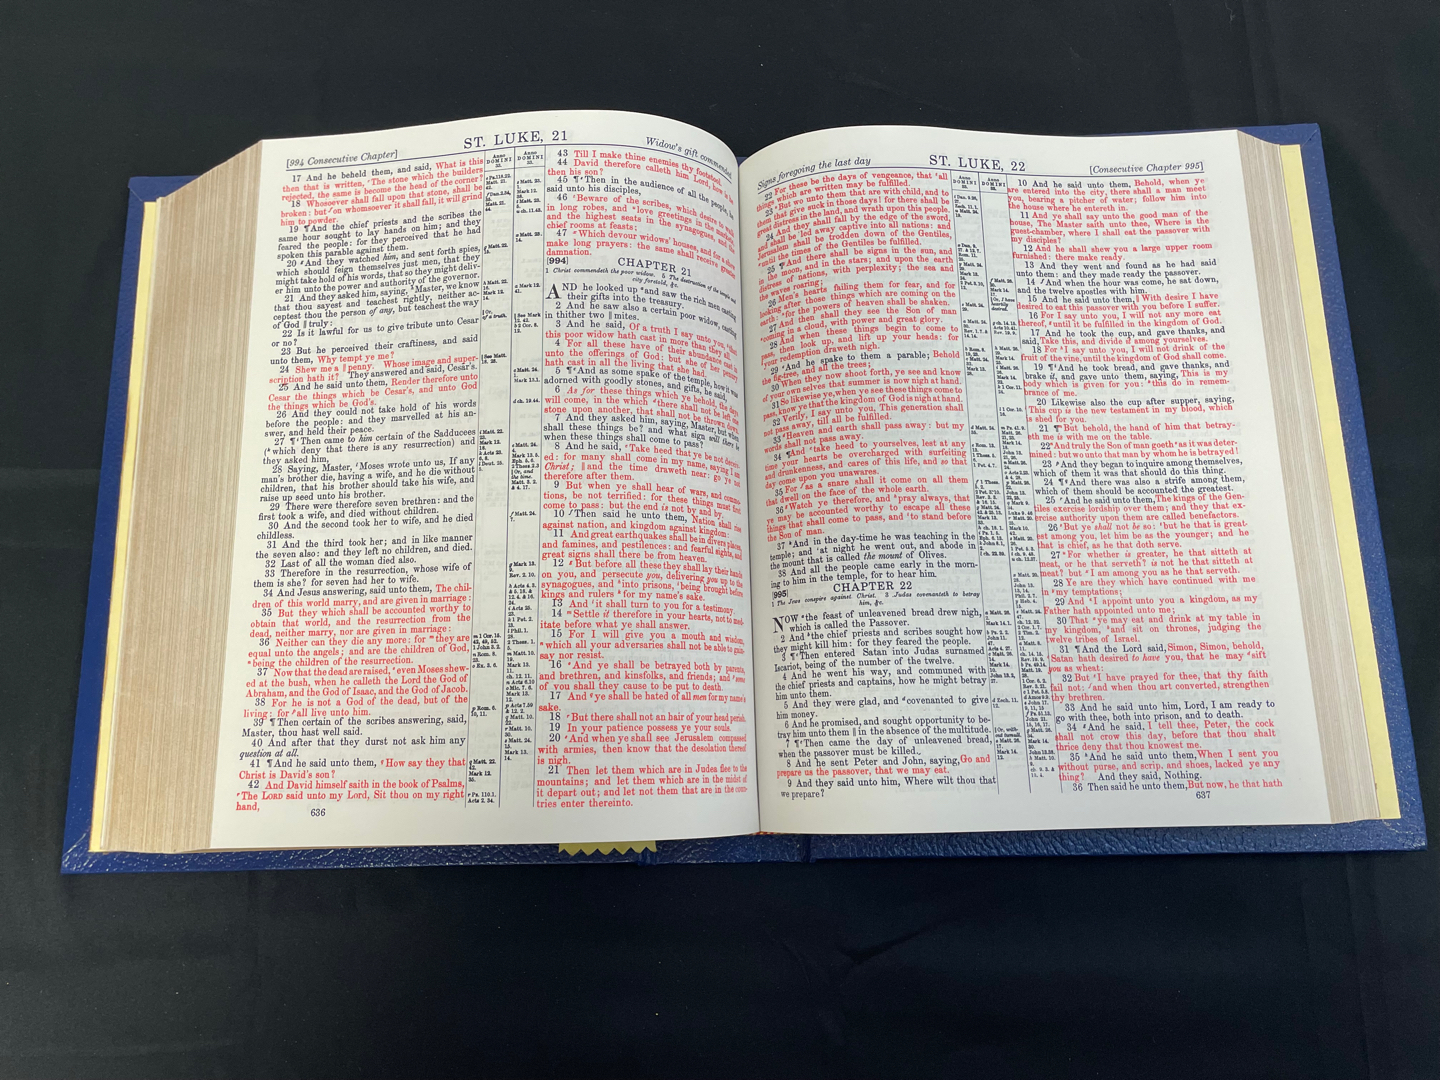 [994 Consecutive Chapter]
ST. LUKE, 21
Widow's gift commended.
17 And he beheld them, and said, What is this
then that is written, The stone which the builders
rejected, the same is become the head of the corner?
18 Whosoever shall fall upon that stone, shall be
broken: but on whomsoever it shall fall, it will grind
him to powder.
19 ¶And the chief priests and the scribes the
same hour sought to lay hands on him; and they
feared the people: for they perceived that he had
spoken this parable against them.
20 And they watched him, and sent forth spies,
which should feign themselves just men, that they
might take hold of his words, that so they might deliv-
er him unto the power and authority of the governor.
21 And they asked him, saying, Master, we know
that thou sayest and teachest rightly, neither ac-
ceptest thou the person of any, but teachest the way
of God ‖ truly:
22 Is it lawful for us to give tribute unto Cesar
or no?
23 But he perceived their craftiness, and said
unto them, Why tempt ye me?
24 Shew me a ‖ penny. Whose image and super-
scription hath it? They answered and said, Cesar's.
25 And he said unto them, Render therefore unto
Cesar the things which be Cesar's, and unto God
the things which be God's.
26 And they could not take hold of his words
before the people: and they marvelled at his an-
swer, and held their peace.
27 ¶ Then came to him certain of the Sadducees
(which deny that there is any resurrection) and
they asked him,
28 Saying, Master, Moses wrote unto us, If any
man's brother die, having a wife, and he die without
children, that his brother should take his wife, and
raise up seed unto his brother.
29 There were therefore seven brethren: and the
first took a wife, and died without children.
30 And the second took her to wife, and he died
childless.
31 And the third took her; and in like manner
the seven also: and they left no children, and died.
32 Last of all the woman died also.
33 Therefore in the resurrection, whose wife of
them is she? for seven had her to wife.
34 And Jesus answering, said unto them, The chil-
dren of this world marry, and are given in marriage:
35 But they which shall be accounted worthy to
obtain that world, and the resurrection from the
dead, neither marry, nor are given in marriage:
36 Neither can they die any more: for they are
equal unto the angels; and are the children of God,
being the children of the resurrection.
37 Now that the dead are raised, even Moses shew-
ed at the bush, when he calleth the Lord the God of
Abraham, and the God of Isaac, and the God of Jacob.
38 For he is not a God of the dead, but of the
living: for all live unto him.
39 ¶ Then certain of the scribes answering, said,
Master, thou hast well said.
40 And after that they durst not ask him any
question at all.
41 ¶ And he said unto them, How say they that
Christ is David's son?
42 And David himself saith in the book of Psalms,
The LORD said unto my Lord, Sit thou on my right
hand,
636
Anno DOMINI 33.
Anno DOMINI 33.
43 Till I make thine enemies thy footstool.
44 David therefore calleth him Lord, how is he
then his son?
45 ¶ Then in the audience of all the people, he
said unto his disciples,
46 Beware of the scribes, which desire to walk
in long robes, and love greetings in the markets,
and the highest seats in the synagogues, and the
chief rooms at feasts;
47 Which devour widows' houses, and for a shew
make long prayers: the same shall receive greater
damnation.
[994]
CHAPTER 21
1 Christ commendeth the poor widow. 5 The destruction of the temple and
city foretold, &c.
AND he looked up and saw the rich men casting
their gifts into the treasury.
2 And he saw also a certain poor widow, casting
in thither two ‖ mites.
3 And he said, Of a truth I say unto you, that
this poor widow hath cast in more than they all.
4 For all these have of their abundance cast in
unto the offerings of God: but she of her penury
hath cast in all the living that she had.
5 ¶ And as some spake of the temple, how it was
adorned with goodly stones, and gifts, he said,
6 As for these things which ye behold, the days
will come, in the which there shall not be left one
stone upon another, that shall not be thrown down.
7 And they asked him, saying, Master, but when
shall these things be? and what sign will there be
when these things shall come to pass?
8 And he said, Take heed that ye be not deceiv-
ed: for many shall come in my name, saying, I am
Christ; ‖ and the time draweth near: go ye not
therefore after them.
9 But when ye shall hear of wars, and commo-
tions, be not terrified: for these things must first
come to pass: but the end is not by and by.
10 Then said he unto them, Nation shall rise
against nation, and kingdom against kingdom:
11 And great earthquakes shall be in divers places,
and famines, and pestilences: and fearful sights, and
great signs shall there be from heaven.
12 But before all these they shall lay their hands
on you, and persecute you, delivering you up to the
synagogues, and into prisons, being brought before
kings and rulers for my name's sake.
13 And it shall turn to you for a testimony.
14 Settle it therefore in your hearts, not to med-
itate before what ye shall answer.
15 For I will give you a mouth and wisdom,
which all your adversaries shall not be able to gain-
say nor resist.
16 And ye shall be betrayed both by parents,
and brethren, and kinsfolks, and friends; and some
of you shall they cause to be put to death.
17 And ye shall be hated of all men for my name's
sake.
18 But there shall not an hair of your head perish.
19 In your patience possess ye your souls.
20 And when ye shall see Jerusalem compassed
with armies, then know that the desolation thereof
is nigh.
21 Then let them which are in Judea flee to the
mountains; and let them which are in the midst of
it depart out; and let not them that are in the coun-
tries enter thereinto.
Signs foregoing the last day
ST. LUKE, 22
[Consecutive Chapter 995]
22 For these be the days of vengeance, that all
things which are written may be fulfilled.
23 But wo unto them that are with child, and to
them that give suck in those days! for there shall be
great distress in the land, and wrath upon this people.
24 And they shall fall by the edge of the sword,
and shall be led away captive into all nations: and
Jerusalem shall be trodden down of the Gentiles,
until the times of the Gentiles be fulfilled.
25 ¶ And there shall be signs in the sun, and
in the moon, and in the stars; and upon the earth
distress of nations, with perplexity; the sea and
the waves roaring;
26 Men's hearts failing them for fear, and for
looking after those things which are coming on the
earth: for the powers of heaven shall be shaken.
27 And then shall they see the Son of man
coming in a cloud, with power and great glory.
28 And when these things begin to come to
pass, then look up, and lift up your heads: for
your redemption draweth nigh.
29 And he spake to them a parable; Behold
the fig-tree, and all the trees;
30 When they now shoot forth, ye see and know
of your own selves that summer is now nigh at hand.
31 So likewise ye, when ye see these things come to
pass, know ye that the kingdom of God is nigh at hand.
32 Verily, I say unto you, This generation shall
not pass away, till all be fulfilled.
33 Heaven and earth shall pass away: but my
words shall not pass away.
34 ¶ And take heed to yourselves, lest at any
time your hearts be overcharged with surfeiting
and drunkenness, and cares of this life, and so that
day come upon you unawares.
35 For as a snare shall it come on all them
that dwell on the face of the whole earth.
36 Watch ye therefore, and pray always, that
ye may be accounted worthy to escape all these
things that shall come to pass, and to stand before
the Son of man.
37 And in the day-time he was teaching in the
temple; and at night he went out, and abode in
the mount that is called the mount of Olives.
38 And all the people came early in the morn-
ing to him in the temple, for to hear him.
CHAPTER 22
[995]
1 The Jews conspire against Christ. 3 Judas covenanteth to betray
him, &c.
NOW the feast of unleavened bread drew nigh,
which is called the Passover.
2 And the chief priests and scribes sought how
they might kill him: for they feared the people.
3 ¶ Then entered Satan into Judas surnamed
Iscariot, being of the number of the twelve.
4 And he went his way, and communed with
the chief priests and captains, how he might betray
him unto them.
5 And they were glad, and covenanted to give
him money.
6 And he promised, and sought opportunity to be-
tray him unto them ‖ in the absence of the multitude.
7 ¶ Then came the day of unleavened bread,
when the passover must be killed.
8 And he sent Peter and John, saying, Go and
prepare us the passover, that we may eat.
9 And they said unto him, Where wilt thou that
we prepare?
Anno DOMINI 33.
Anno DOMINI 33.
10 And he said unto them, Behold, when ye
are entered into the city, there shall a man meet
you, bearing a pitcher of water; follow him into
the house where he entereth in.
11 And ye shall say unto the good man of the
house, The Master saith unto thee, Where is the
guest-chamber, where I shall eat the passover with
my disciples?
12 And he shall shew you a large upper room
furnished: there make ready.
13 And they went and found as he had said
unto them: and they made ready the passover.
14 And when the hour was come, he sat down,
and the twelve apostles with him.
15 And he said unto them, ‖ With desire I have
desired to eat this passover with you before I suffer.
16 For I say unto you, I will not any more eat
thereof, until it be fulfilled in the kingdom of God.
17 And he took the cup, and gave thanks, and
said, Take this, and divide it among yourselves.
18 For I say unto you, I will not drink of the
fruit of the vine, until the kingdom of God shall come.
19 ¶ And he took bread, and gave thanks, and
brake it, and gave unto them, saying, This is my
body which is given for you: this do in remem-
brance of me.
20 Likewise also the cup after supper, saying,
This cup is the new testament in my blood, which
is shed for you.
21 ¶ But behold, the hand of him that betray-
eth me is with me on the table.
22 And truly the Son of man goeth as it was deter-
mined: but wo unto that man by whom he is betrayed!
23 And they began to inquire among themselves,
which of them it was that should do this thing.
24 ¶ And there was also a strife among them,
which of them should be accounted the greatest.
25 And he said unto them, The kings of the Gen-
tiles exercise lordship over them; and they that ex-
ercise authority upon them are called benefactors.
26 But ye shall not be so: but he that is great-
est among you, let him be as the younger; and he
that is chief, as he that doth serve.
27 For whether is greater, he that sitteth at
meat, or he that serveth? is not he that sitteth at
meat? but I am among you as he that serveth.
28 Ye are they which have continued with me
in my temptations;
29 And I appoint unto you a kingdom, as my
Father hath appointed unto me;
30 That ye may eat and drink at my table in
my kingdom, and sit on thrones, judging the
twelve tribes of Israel.
31 ¶ And the Lord said, Simon, Simon, behold,
Satan hath desired to have you, that he may sift
you as wheat:
32 But I have prayed for thee, that thy faith
fail not: and when thou art converted, strengthen
thy brethren.
33 And he said unto him, Lord, I am ready to
go with thee, both into prison, and to death.
34 And he said, I tell thee, Peter, the cock
shall not crow this day, before that thou shalt
thrice deny that thou knowest me.
35 And he said unto them, When I sent you
without purse, and scrip, and shoes, lacked ye any
thing? And they said, Nothing.
36 Then said he unto them, But now, he that hath
637